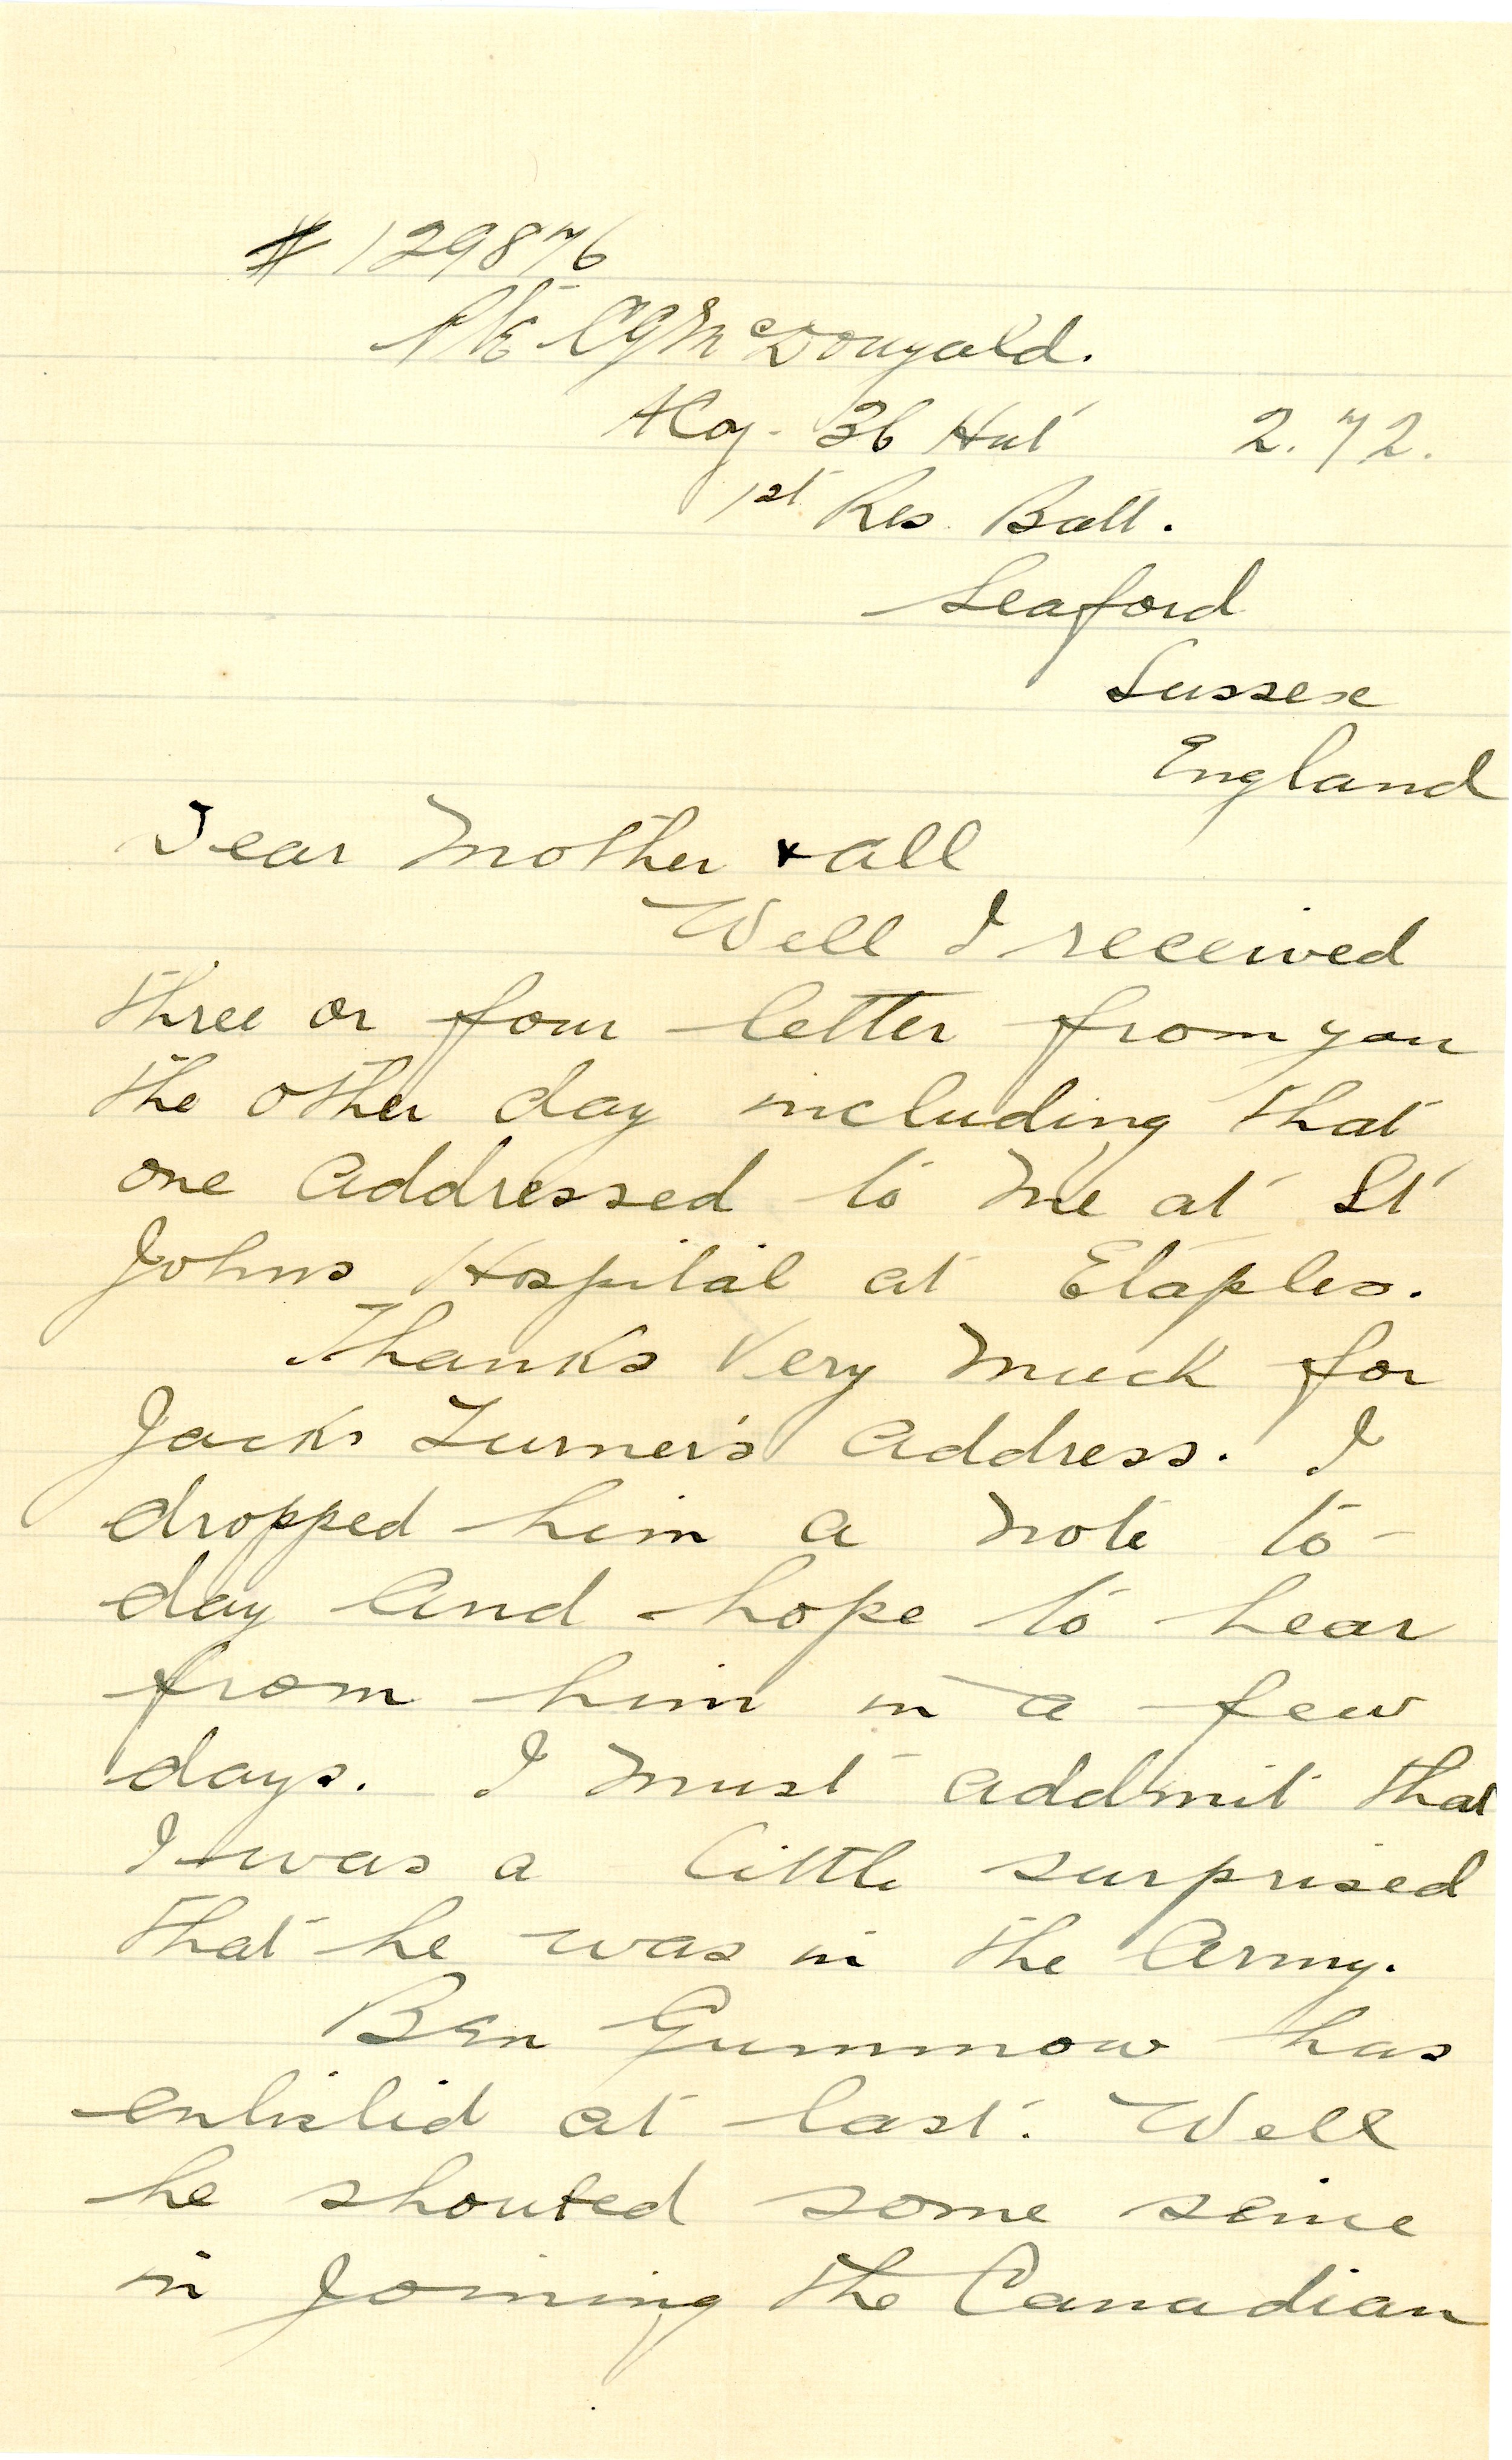 # 129876
Pte C G McDougald.
A Coy. 36 Hut 2.72.
1st Res. Batt.
Seaford
Sussex
England
Dear Mother + all
Well I received
three or four letter from you
the other day including that
one addressed to me at St
Johns Hospital at Etaples.
Thanks Very Much for
Jacks Turner's address. I
dropped him a note to-
day and hope to hear
from him in a few
days. I must addmit that
I was a little surprised
that he was in the Army.
Ben Gummow has
enlisted at last. Well
he shouted some
in Joining the Canadian